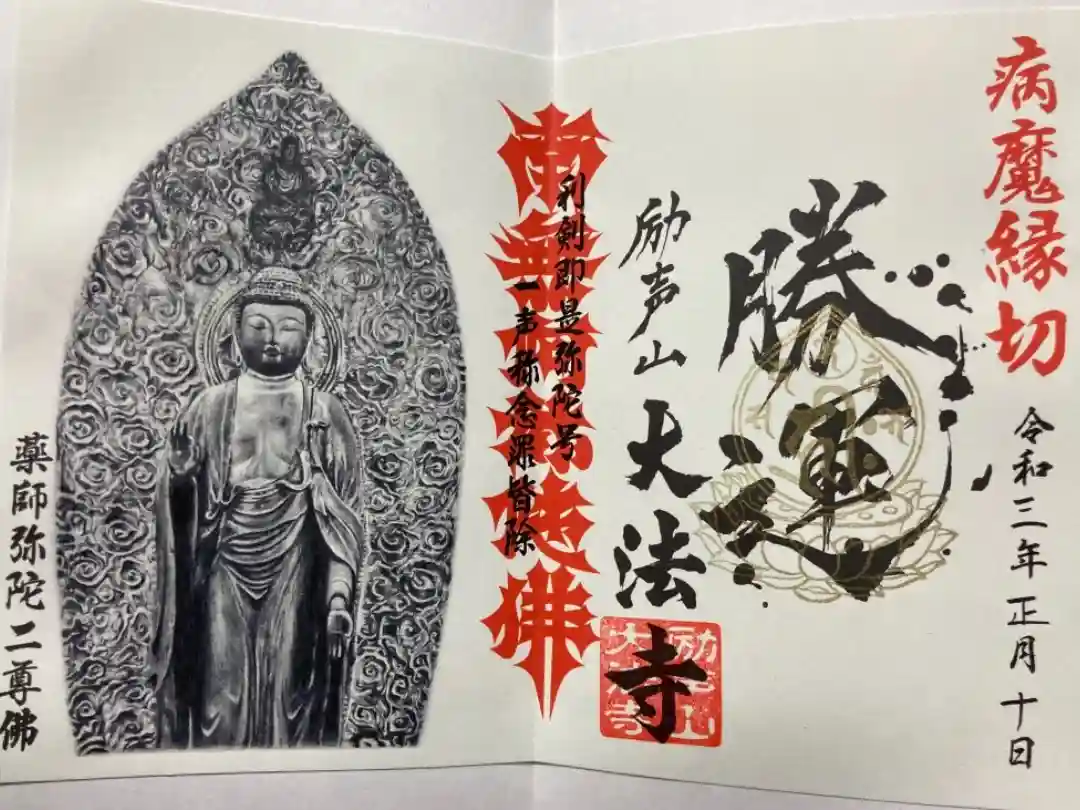 病魔縁切
令和三年正月十日
勝運
励声山大法寺
利剣即是弥陀号
一声称念罪皆除
南無阿弥陀佛
薬師弥陀二尊佛